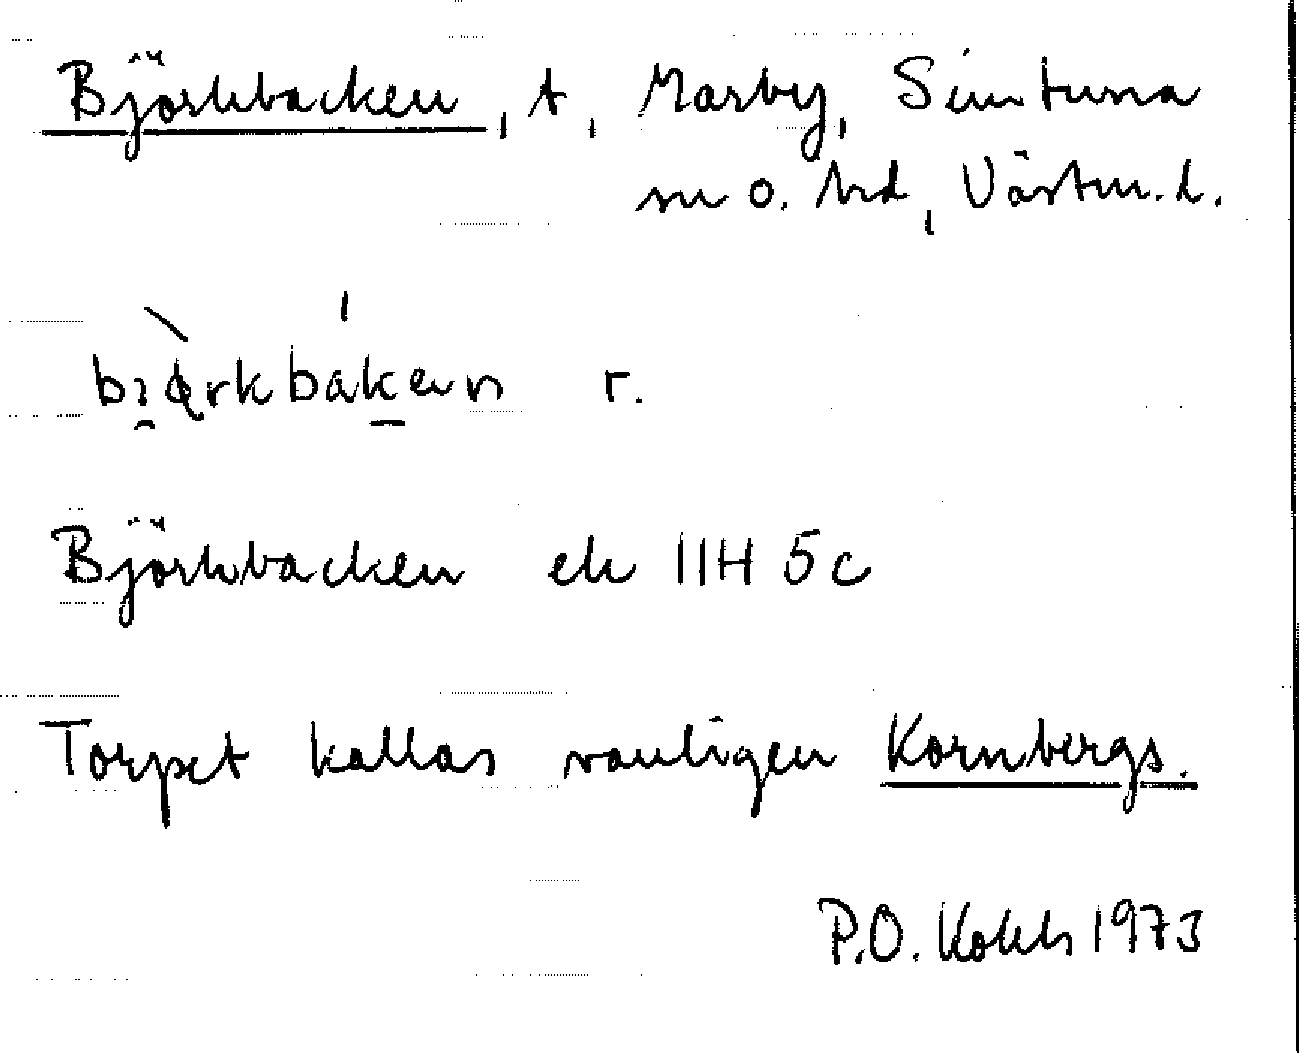 Björkbacken, t, Marby, Simtuna
sn o. hd, Västm. l.
bjø̀rkbákεn r.
Björkbacken ek 11H 5c
Torpet kallas vanligen Kornbergs.
P.O. Kolch 1973